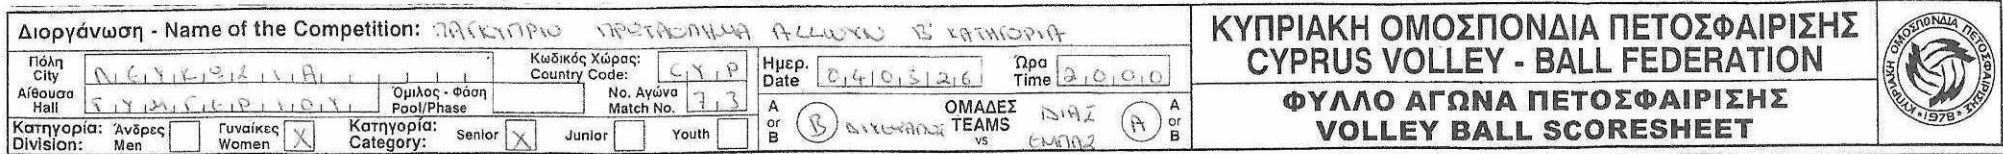 Διοργάνωση - Name of the Competition: ΠΑΓΚΥΠΡΙΟ ΠΡΩΤΑΘΛΗΜΑ ALLWYN Β' ΚΑΤΗΓΟΡΙΑ
Πόλη City ΛΕΥΚΩΣΙΑ Κωδικός Χώρας: Country Code: CYP
Αίθουσα Hall Όμιλος - Φάση Pool/Phase No. Αγώνα Match No. 73
Κατηγορία: Division: Άνδρες Men Γυναίκες Women X Κατηγορία: Category: Senior X Junior Youth
Ημερ. Date 040326 Ώρα Time 2000
A or B B ΟΜΑΔΕΣ TEAMS vs ΔΙΑΣ A A or B
ΚΥΠΡΙΑΚΗ ΟΜΟΣΠΟΝΔΙΑ ΠΕΤΟΣΦΑΙΡΙΣΗΣ
CYPRUS VOLLEY - BALL FEDERATION
ΦΥΛΛΟ ΑΓΩΝΑ ΠΕΤΟΣΦΑΙΡΙΣΗΣ
VOLLEY BALL SCORESHEET
ΚΥΠΡΙΑΚΗ ΟΜΟΣΠΟΝΔΙΑ ΠΕΤΟΣΦΑΙΡΙΣΗΣ
•1978•